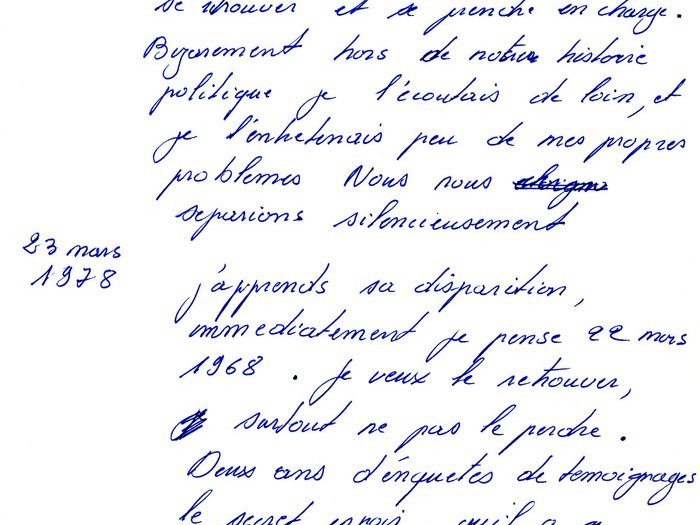 se retrouver et se prendre en charge.
Bizarement hors de notre histoire
politique je l'écoutais de loin, et
je l'entretenais peu de mes propres
problemes Nous nous
separions silencieusement
23 mars
1978
j'apprends sa disparition,
immediatement je pense 22 mars
1968. Je veux le retrouver,
surtout ne pas le perdre.
Deux ans d'énquetes de temoignages
le secret espoir qu'il